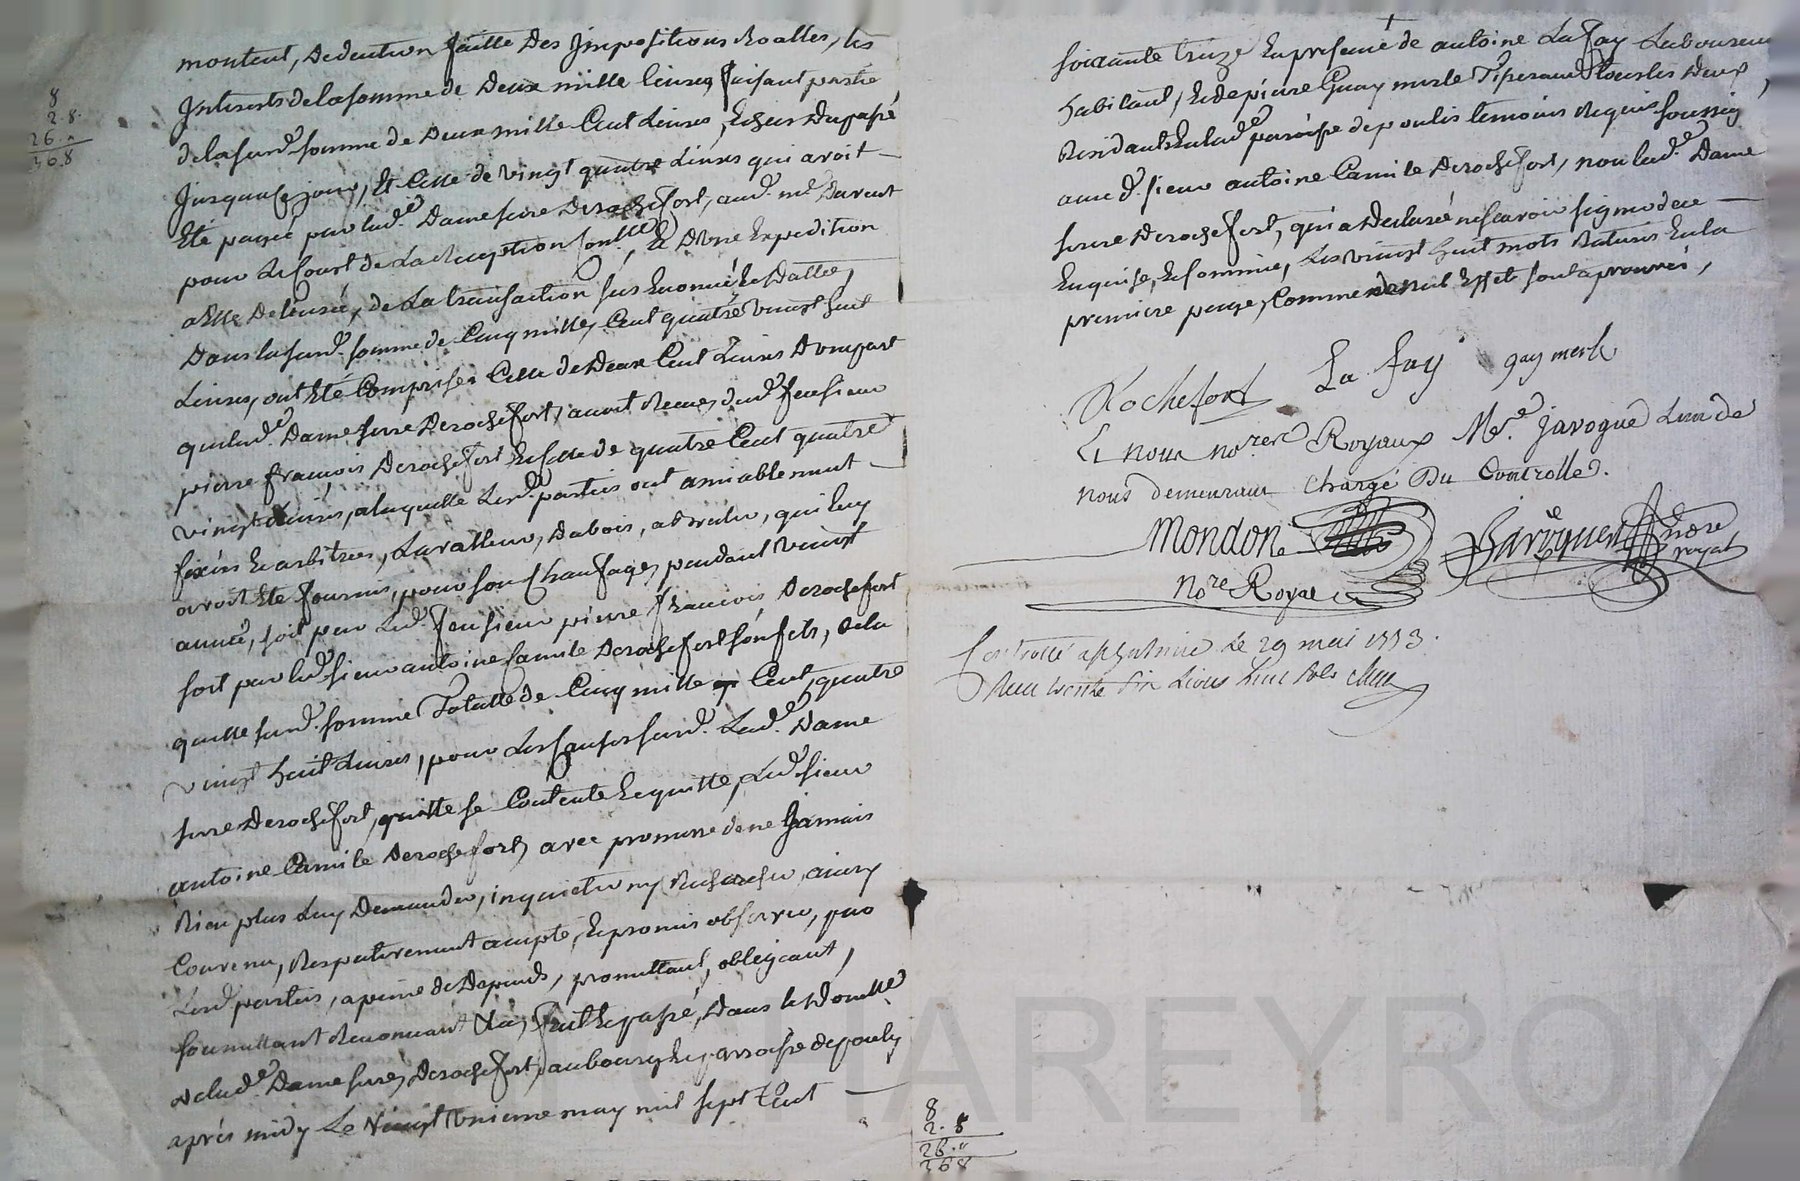 montent, deduction faitte des Jmpositions Roalles, les
Jnterets de la somme de deux mille livres faisant partie
de la surd. somme de deux mille Cent Livres, Echeus du passé
Jusqua ce jour, Et Celle de vingt quatre Livres qui avoit
Eté payée par lad.e Dame serre Derochefort, aud. me
pour le Coust de la Reception
de la transaction sus Enoncée Et dattée,
Dans la surd. somme de Cinq mille Cent quatre vingt huit
Livres, ont Eté Comprises Celle de deux Cent Livres d'une part
que lad.e Dame serre Derochefort avoit Receue dud. feu sieur
pierre françois Derochefort Et Celle de quatre Cent quatre
vingt Livres, a laquelle Lesd. parties ont amiablement
fixés Et arbitrés, La valleur, du bois, a bruler, qui luy
avoit Eté fourni, pour son Chaufage, pendant vingt
année, soit par Led. feu sieur pierre françois Derochefort
soit par led. sieur antoine Camile Derochefort son fils, de la
quelle surd. somme Totalle de Cinq mille Cent quatre
vingt huit Livres, pour Les Causes surd. Lad.e Dame
serre Derochefort, quitte se Contente Et quitte, Led. sieur
antoine Camile Derochefort, avec promesse de ne Jamais
Rien plus Luy Demander, inquieter ny Rechercher, ainsy
Convenu, Respectivement accepté, Et promis observer, par
Lesd. parties, a peine de Depends, promettant, obligeant,
soumettant Renonceant &a, fait Et passé, Dans le Domille
de lad.e Dame serre, Derochefort, au bourg Et parroisse de pouly
après midy Le Vingt unieme may mil sept Cent
8
2.8.
26."
36 8
soixante treize En presence de antoine La fay Laboureur
habitant, Et de pierre Guay merle Tisserand tous les deux
Residants En lad.e paroisse de poulis temoins Requis soussig
avec d. sieur antoine Camile Derochefort, non lad.e Dame
serre Derochefort, qui a declarée ne scavoir signer de ce
Enquise, Et sommée, Les vingt huit mots Raturés En la
premiere page, Comme de nul Effet sont aprouvés,
Rochefort La fay gay merle
Et nous no.res Royaux M.e Javogue L'un de
nous demeurant Chargé Du Controlle.
Mondon
no.re Royal
Javogue no.re
royal
Controllé a le 29 mai 1773.
Reçu trente six Livres huit sols
8
2.8
26."
36 8
CHAREYRON